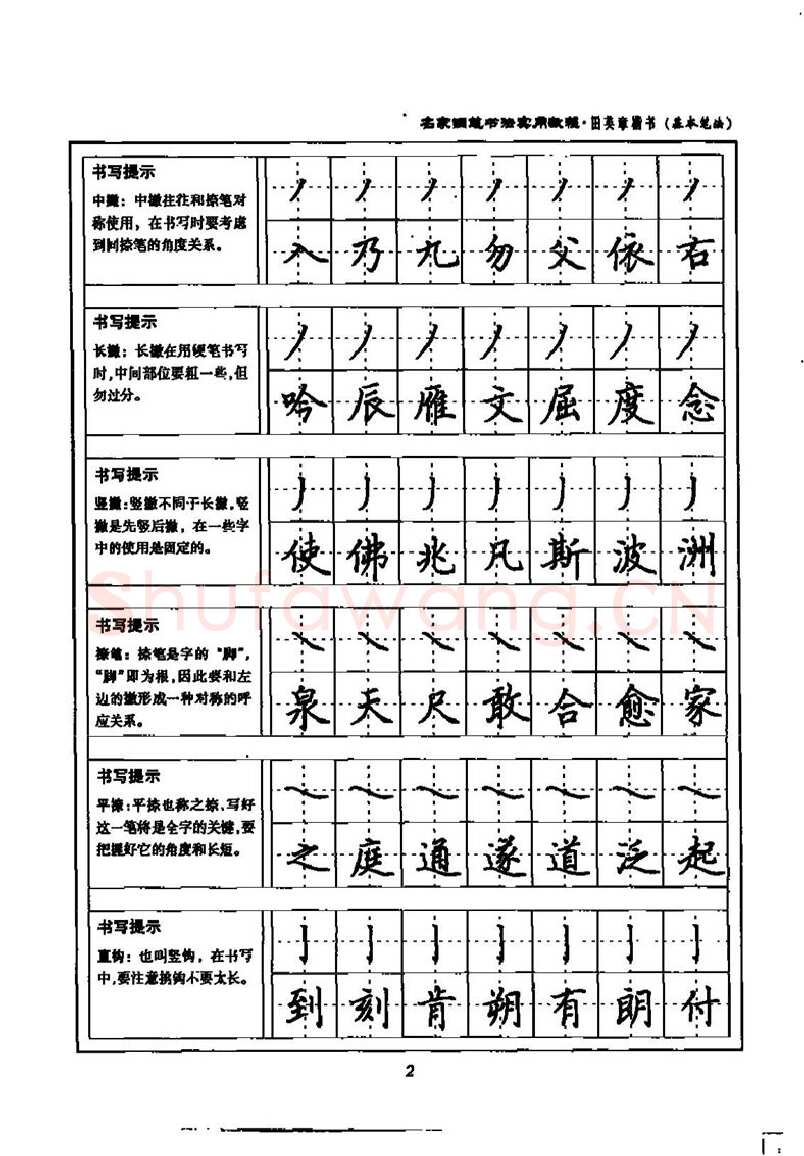 名家钢笔书法实用教程·田英章楷书（基本笔法）
书写提示
中撇：中撇往往和捺笔对
称使用，在书写时要考虑
到同捺笔的角度关系。
入 乃 九 勿 父 依 右
书写提示
长撇：长撇在用硬笔书写
时，中间部位要粗一些，但
勿过分。
吟 辰 雁 文 屈 度 念
书写提示
竖撇：竖撇不同于长撇，竖
撇是先竖后撇，在一些字
中的使用是固定的。
使 佛 兆 凡 斯 波 洲
书写提示
捺笔：捺笔是字的“脚”，
“脚”即为根，因此要和左
边的撇形成一种对称的呼
应关系。
泉 天 尺 敢 合 愈 家
书写提示
平捺：平捺也称之捺，写好
这一笔将是全字的关键，要
把握好它的角度和长短。
之 庭 通 遂 道 泛 起
书写提示
直钩：也叫竖钩，在书写
中，要注意挑钩不要太长。
到 刻 肯 朔 有 朗 付
Shufawang.CN
2